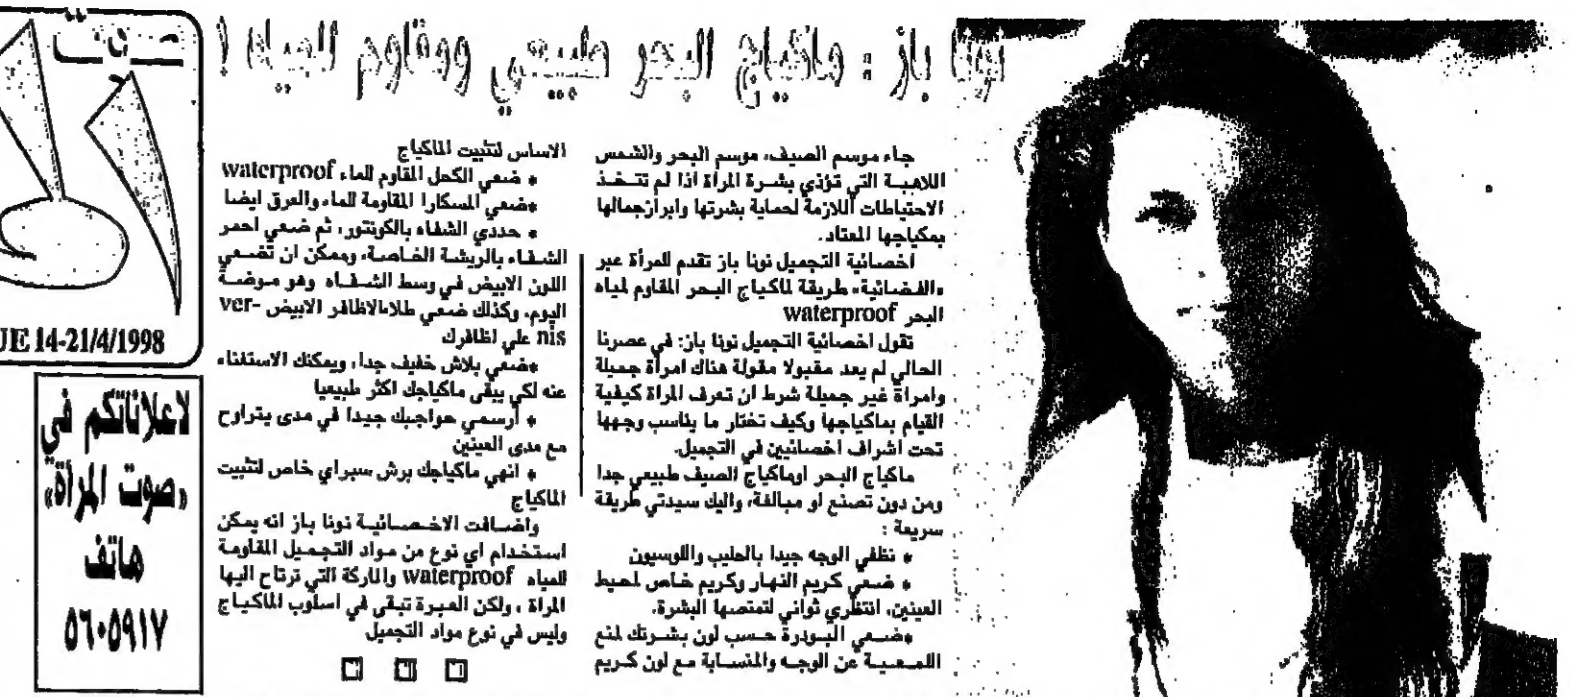 نونا باز : ماكياج البحر طبيعي ومقاوم للمياه !
جاء موسم الصيف، موسم البحر والشمس
اللاهبة التي تؤذي بشرة المراة اذا لم تتخذ
الاحتياطات اللازمة لحماية بشرتها وابراز جمالها
بمكياجها المعتاد.
اخصائية التجميل نونا باز تقدم للمرأة عبر
«الفضائية» طريقة لماكياج البحر المقاوم لمياه
البحر waterproof
تقول اخصائية التجميل نونا باز: في عصرنا
الحالي لم يعد مقبولا مقولة هناك امرأة جميلة
وامراة غير جميلة شرط ان تعرف المراة كيفية
القيام بماكياجها وكيف تختار ما يناسب وجهها
تحت اشراف اخصائيين في التجميل.
ماكياج البحر اوماكياج الصيف طبيعي جدا
ومن دون تصنع او مبالغة، واليك سيدتي طريقة
سريعة :
* نظفي الوجه جيدا بالحليب واللوسيون
* ضعي كريم النهار وكريم خاص لمحيط
العينين، انتظري ثواني لتمتصها البشرة.
*ضعي البودرة حسب لون بشرتك لمنع
اللمعية عن الوجه والمنسابة مع لون كريم
الاساس لتثبيت الماكياج
* ضعي الكحل المقاوم للماء waterproof
*ضعي المسكارا المقاومة للماء والعرق ايضا
* حددي الشفاه بالكونتور، ثم ضعي احمر
الشفاه بالريشة الخاصة، وممكن ان تضعي
اللون الابيض في وسط الشفاه وهو موضة
اليوم، وكذلك ضعي طلاءالاظافر الابيض ver-
nis على اظافرك
*ضعي بلاش خفيف جدا، ويمكنك الاستغناء
عنه لكي يبقى ماكياجك اكثر طبيعيا
* أرسمي حواجبك جيدا في مدى يتراوح
مع مدى العينين
* انهي ماكياجك برش سبراي خاص لتثبيت
الماكياج
واضافت الاخصائية نونا باز انه يمكن
استخدام اي نوع من مواد التجميل المقاومة
للمياه waterproof والماركة التي ترتاح اليها
المراة ، ولكن العبرة تبقى في اسلوب الماكياج
وليس في نوع مواد التجميل
UE 14-21/4/1998
لاعلاناتكم في
«صوت المرأة»
هاتف
٥٦٠٥٩١٧